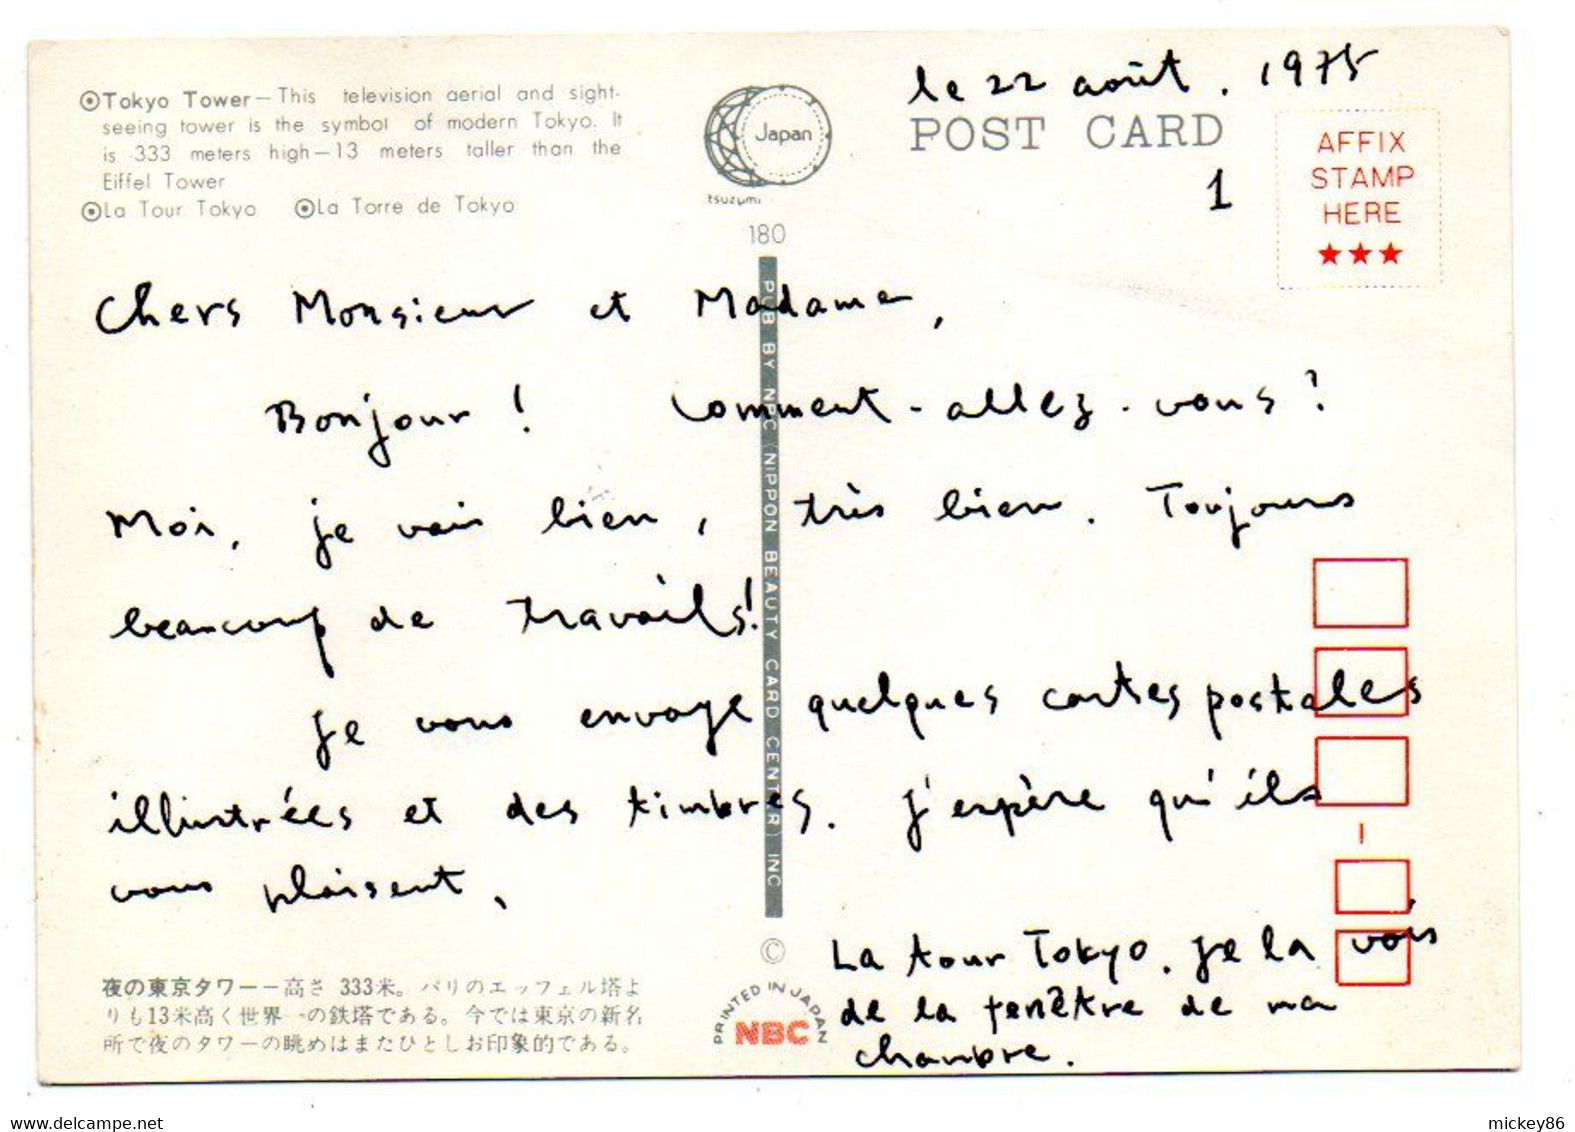 le 22 août. 1975
⦿Tokyo Tower—This television aerial and sight-
seeing tower is the symbol of modern Tokyo. It
is 333 meters high—13 meters taller than the
Eiffel Tower
⦿La Tour Tokyo ⦿La Torre de Tokyo
Japan
tsuzumi
180
POST CARD
1
AFFIX
STAMP
HERE
★★★
PUB BY NBC (NIPPON BEAUTY CARD CENTER) INC
Chers Monsieur et Madame,
Bonjour ! Comment-allez-vous ?
Moi, je vais bien, très bien. Toujours
beaucoup de travails!
Je vous envoye quelques cartes postales
illustrées et des timbres. J'espère qu'ils
vous plaisent.
La tour Tokyo. Je la vois
de la fenêtre de ma
chambre.
夜の東京タワー—高さ 333米。パリのエッフェル塔よ
りも13米高く世界一の鉄塔である。今では東京の新名
所で夜のタワーの眺めはまたひとしお印象的である。
©
PRINTED IN JAPAN
NBC
www.delcampe.net
mickey86